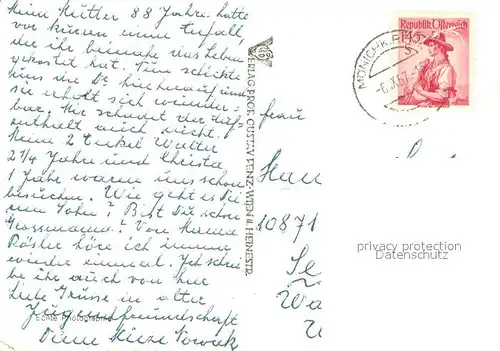 Meine Mutter 88 Jahre hatte
vor kurzem einen Unfall,
der ihr beinahe das Leben
gekostet hat. Nun schickte
uns die Dr. hierherauf und
sie erholt sich wunder-
bar. Mir schadet der Auf-
enthalt auch nicht.
Meine 2 Enkel Walter
2 1/4 Jahre und Christa
1 Jahr waren uns schon
besuchen. Wie geht es Dei-
nem Sohn? Bist Du schon
Grossmama? Von Hanna
Rösler höre ich immer
wieder einmal. Ich schrei
be ihr auch von hier
Liebe Grüsse in alter
Jugendfreundschaft
Echte Photographie
Deine Mieze
VERLAG PROF. GUSTAV LENZ-WIEN II. HEINESTR.
Republik Österreich
MÖNICHKIRCHEN
Frau
10871
privacy protection
Datenschutz